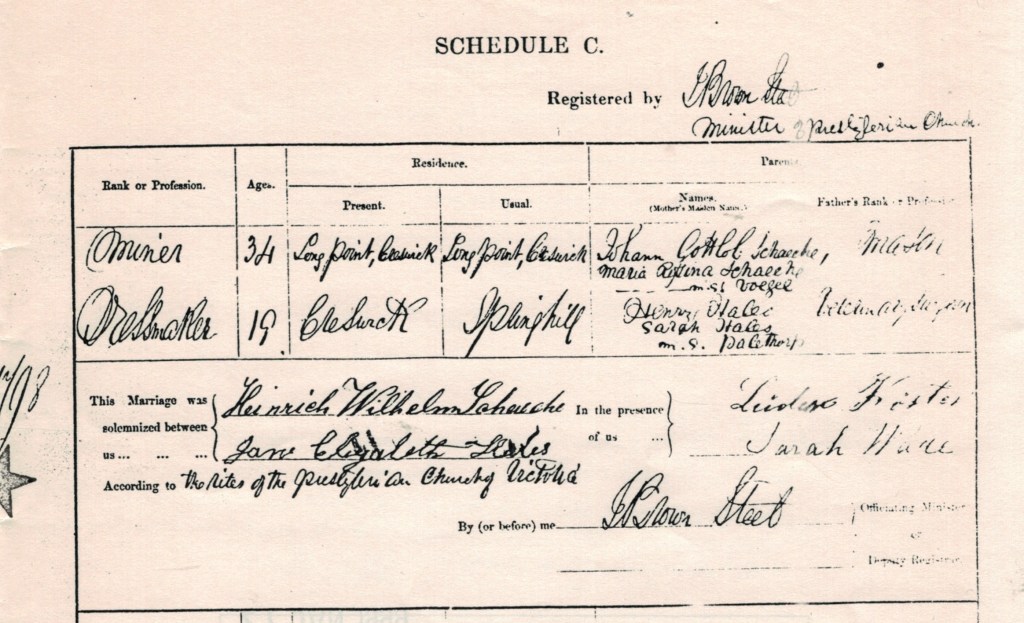 SCHEDULE C.
Registered by J Brown Steel
Minister of Presbyterian Church.
Rank or Profession. Ages. Residence. Parents
Present. Usual. Names. (Mother's Maiden Name.) Father's Rank or Profession
Miner 34 Long Point, Creswick Long Point, Creswick Johann Gottlob Schaeche, Mason
Maria Rosina Schaeche
m.s. Voegel
Dressmaker 19 Creswick Springhill Henry Hales Veterinary Surgeon
Sarah Hales
m.s. Palethorp
/98
This Marriage was solemnized between us... ... ... Heinrich Wilhelm Schaeche
Jane Elizabeth Hales
In the presence of us ...
Sarah
According to the rites of the Presbyterian Church of Victoria
By (or before) me J Brown Steel Officiating Minister
or
Deputy Registrar